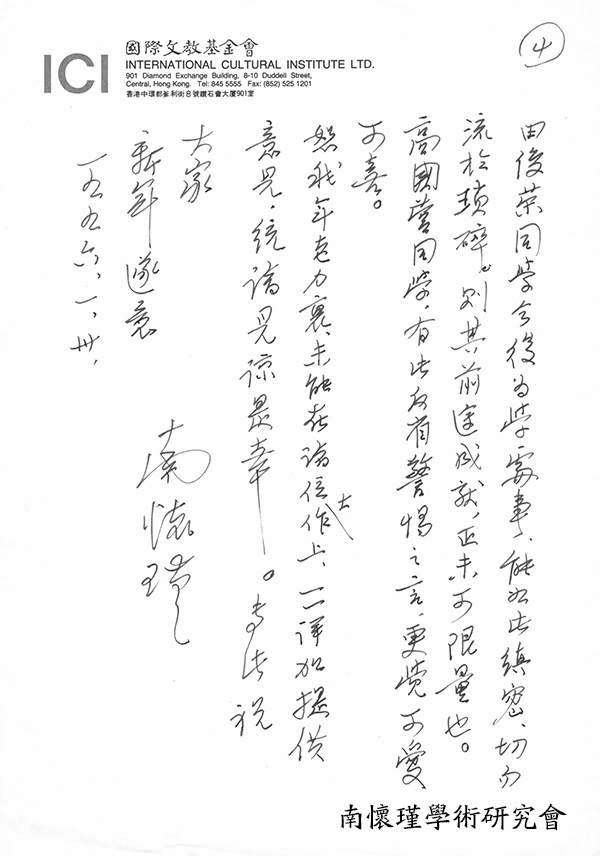 ICI
國際文教基金會
INTERNATIONAL CULTURAL INSTITUTE LTD.
901 Diamond Exchange Building, 8-10 Duddell Street,
Central, Hong Kong. Tel: 845 5555 Fax: (852) 525 1201
香港中環都爹利街8號鑽石會大厦901室
4
田俊榮同學今後為學處事、能如此縝密、切勿
流於瑣碎。則其前途成就、正未可限量也。
高國蕾同學、有此反省警惕之言、更覺可愛
可喜。
然我年老力衰、未能在諸位大作上、一一詳加提供
意見、統請見諒是幸——。專此祝
大家
新年遂意
一九九六、一、卅、
南懷瑾
南懷瑾學術研究會